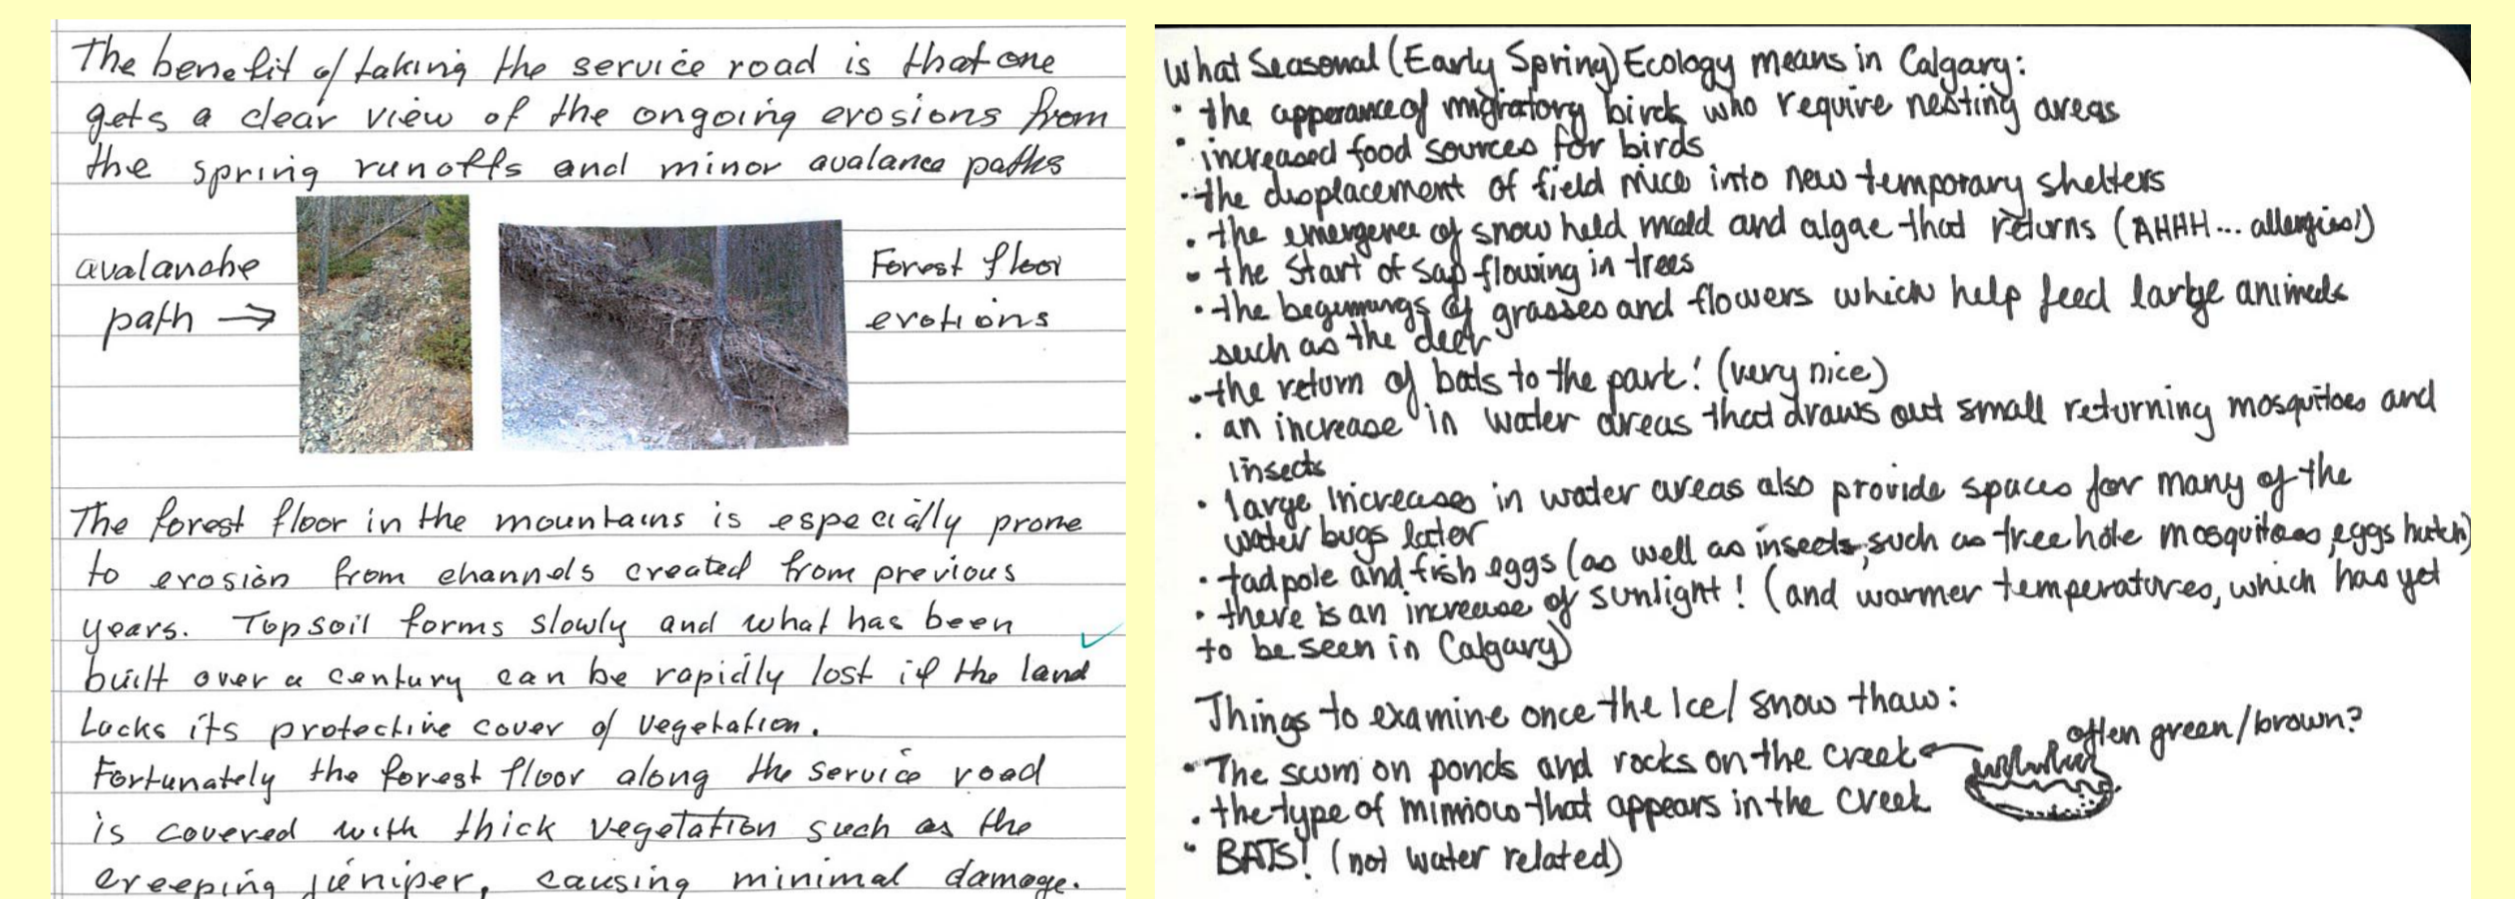 The benefit of taking the service road is that one
gets a clear view of the ongoing erosions from
the spring runoffs and minor avalance paths
avalanche
path →
Forest floor
erotions
The forest floor in the mountains is especially prone
to erosion from channels created from previous
years. Topsoil forms slowly and what has been
built over a century can be rapidly lost if the land
Lacks its protective cover of vegetation.
Fortunately the forest floor along the service road
is covered with thick vegetation such as the
creeping juniper, causing minimal damage.
What Seasonal (Early Spring) Ecology means in Calgary:
• the apperance of migratory birds who require nesting areas
• increased food sources for birds
• the displacement of field mice into new temporary shelters
• the emergence of snow held mold and algae that returns (AHHH... allergies!)
• the start of sap flowing in trees
• the beginnings of grasses and flowers which help feed large animals
such as the deer
• the return of bats to the park! (very nice)
• an increase in water areas that draws out small returning mosquitoes and
insects
• large increases in water areas also provide spaces for many of the
water bugs later
• tadpole and fish eggs (as well as insects, such as treehole mosquitoes, eggs hatch)
• there is an increase of sunlight! (and warmer temperatures, which has yet
to be seen in Calgary)
Things to examine once the Ice/snow thaw:
often green/brown?
• The scum on ponds and rocks on the creek ←
• the type of that appears in the creek
• BATS! (not water related)